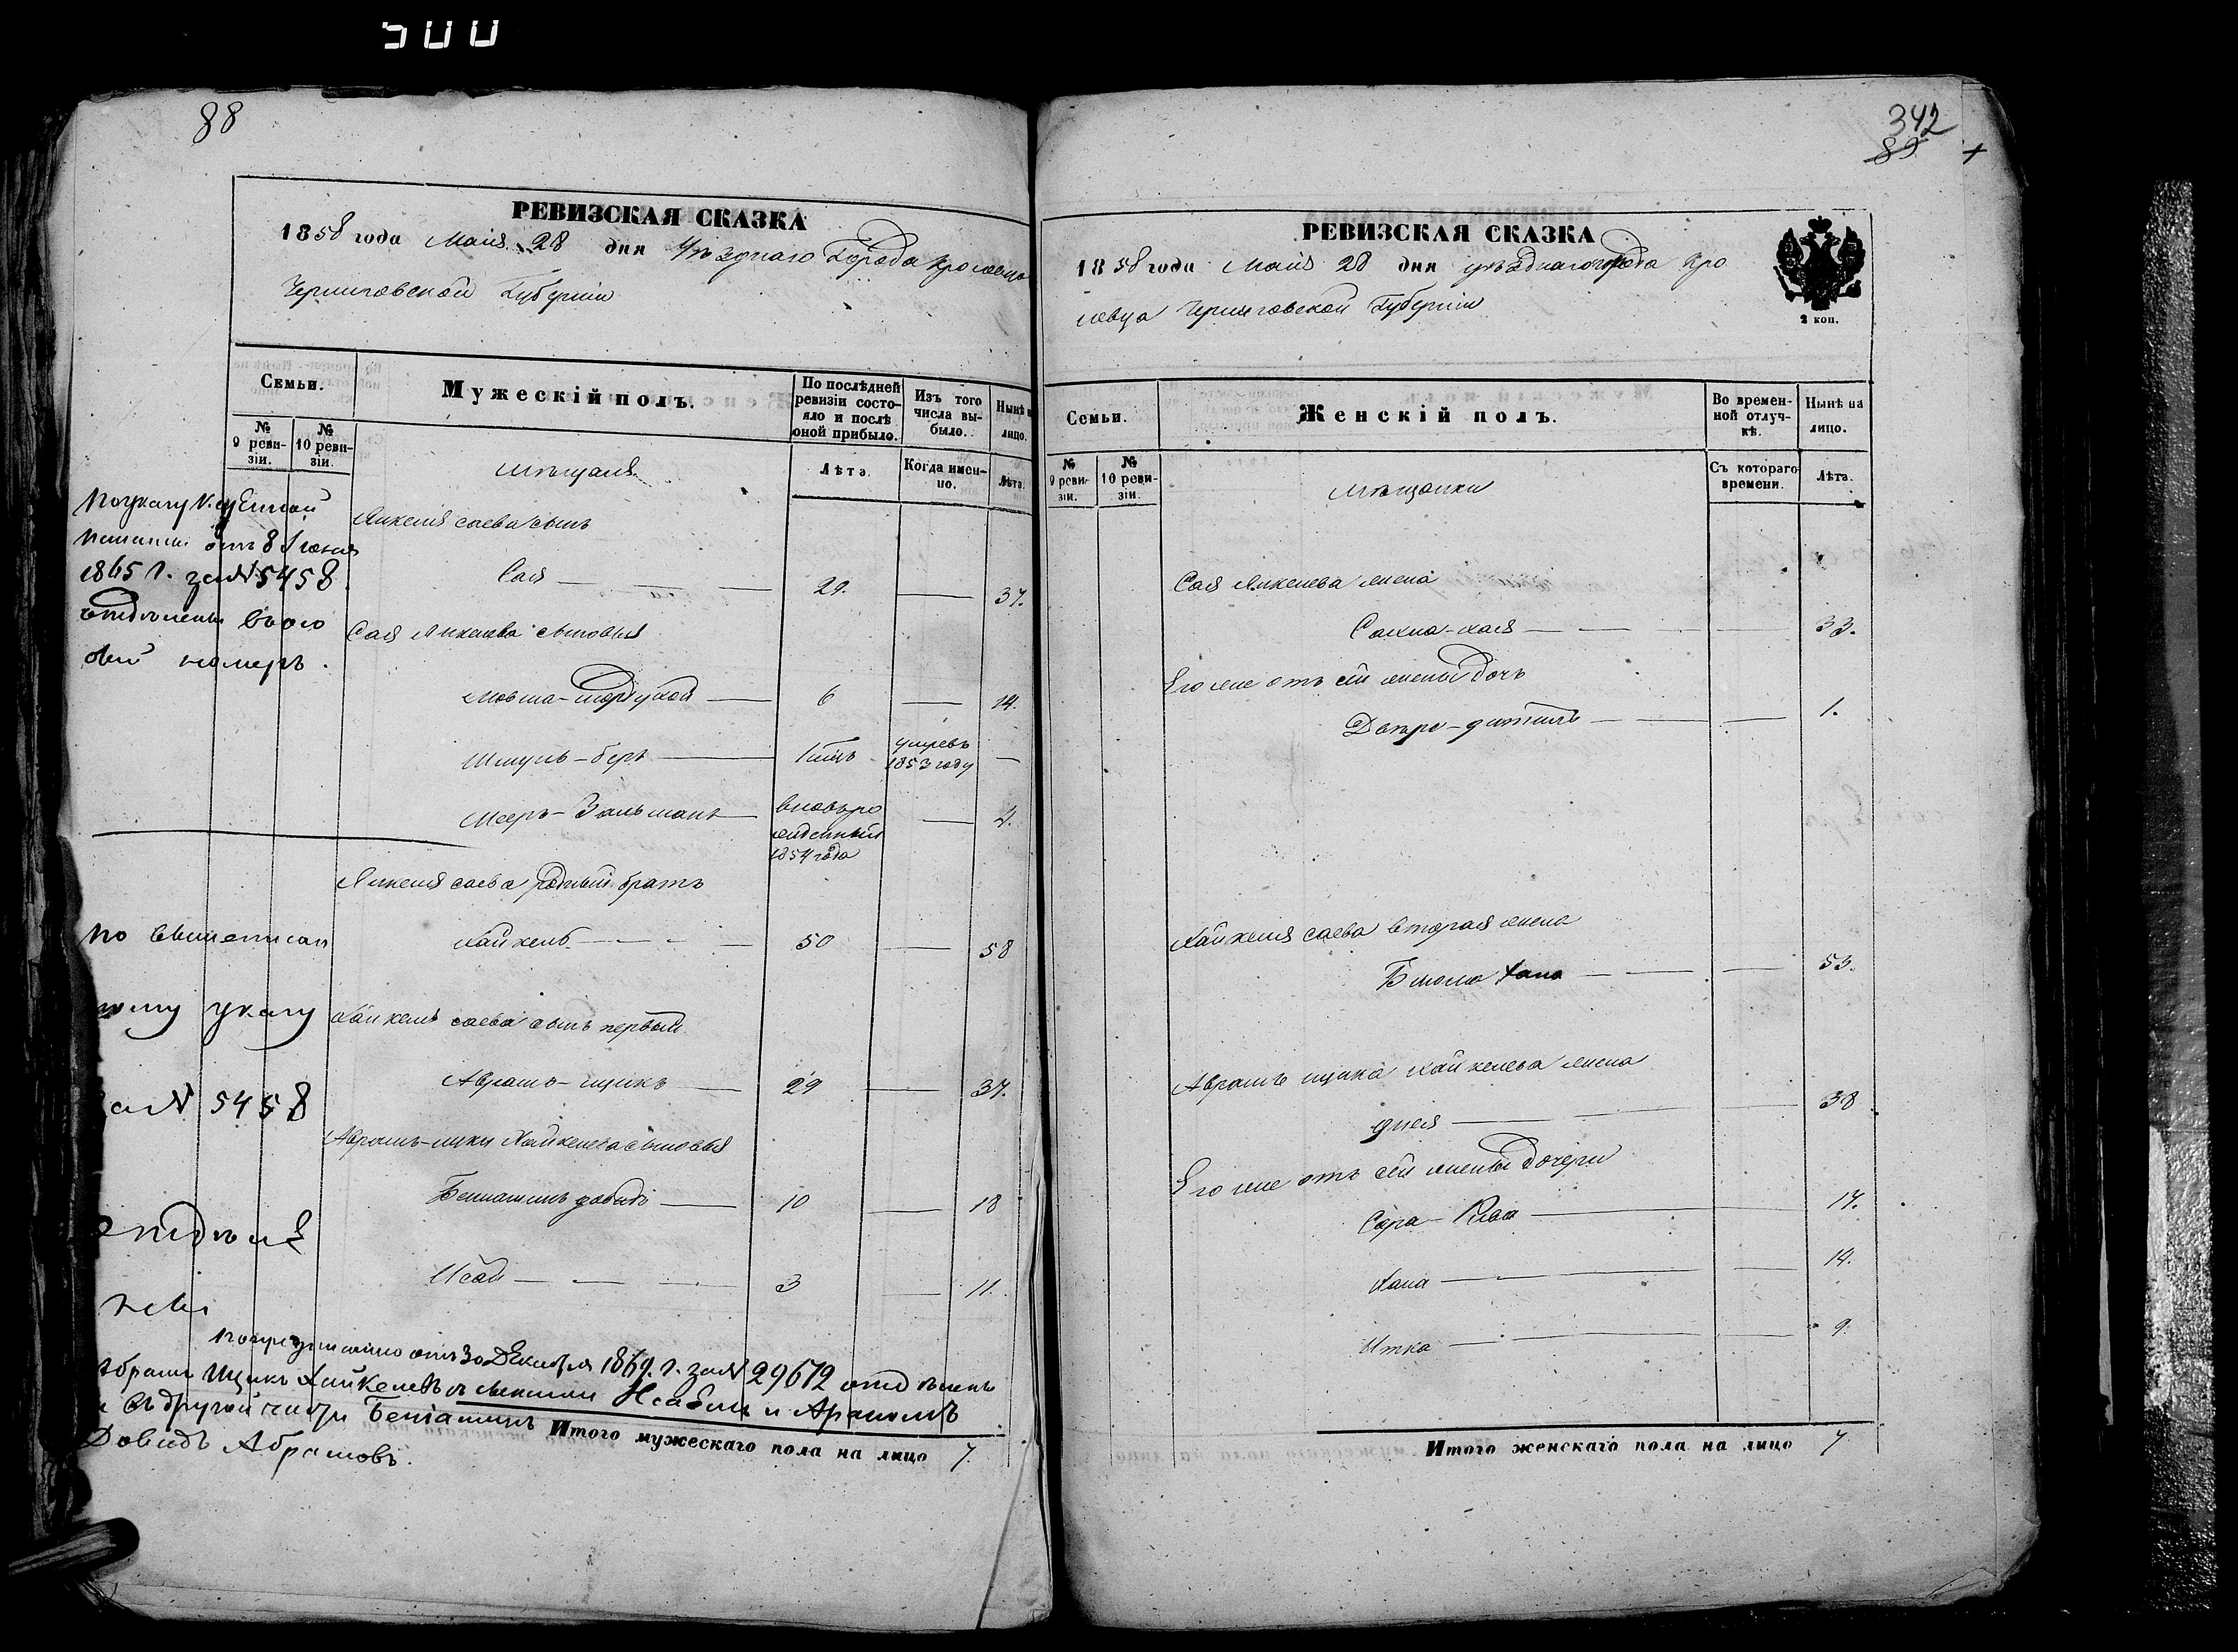 500
88
РЕВИЗСКАЯ СКАЗКА
1858 года Маія 28 дня уѣзднаго Города Кролевца
Черниговской Губерніи
Семьи.
Мужескій полъ.
По послѣдней ревизіи состояло и послѣ оной прибыло.
Изъ того числа выбыло.
Нынѣ на лицо.
№ 9 ревизіи.
№ 10 ревизіи.
Лѣта.
Когда именно.
Лѣта.
Мѣщаня
По указу Казенной
Палаты отъ 8 Іюня
1865 г. за № 5458
отдѣлены въ осо
бый номеръ.
Янкеля саева сынъ
Сая 29. 37.
Сая Янкелева сыновья
Мовша 6 14.
Шмуль-беръ умревъ 1853 году
Мееръ-Зальманъ вновьро
жденный
1854 года
Янкеля саева родный братъ
Хайкель 50 58
По вышеписан
ному указу
за № 5458
Хайкеля саева сынъ первый
Аврамъ-ицикъ 29 37.
Аврамъ-ицки Хайкелева сыновья
Беньяминъ довидъ 10 18
Исай 3 11.
отъ 30 Декабря 1869. г. за № 29672 отдѣленъ
Абрамъ Ицикъ Хайкелевъ
и въ другой Беніаминъ
Довидъ Абрамовъ.
Итого мужескаго пола на лицо 7.
342
89
РЕВИЗСКАЯ СКАЗКА
1858 года Маія 28 дня уѣзднаго города Кро
левца Черниговской Губерніи
2 коп.
Семьи.
Женскій полъ.
Во временной отлучкѣ.
Нынѣ на лицо.
№ 9 ревизіи.
№ 10 ревизіи.
Съ котораго времени.
Лѣта.
Мѣщанки
Сая Янкелева жена
33.
Его же отъ сей жены дочь
1.
Хайкеля саева вторая жена
Хана 53.
Аврамъ ицика Хайкелева жена
38
Его же отъ сей жены дочери
Сора-Рива 17.
Хана 14.
Итка 9.
Итого женскаго пола на лицо 7